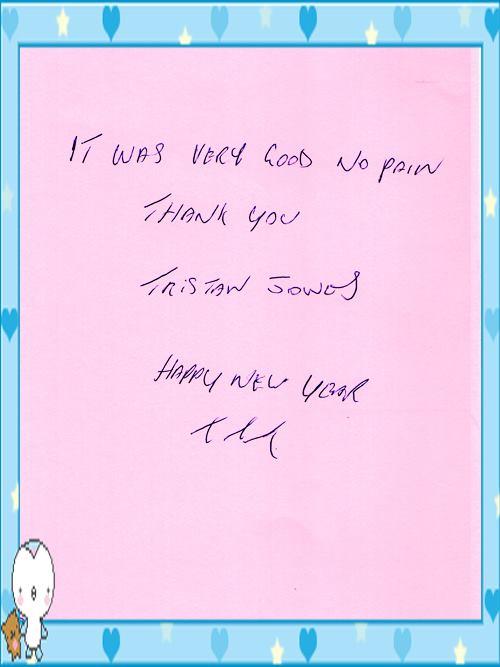 IT WAS VERY GOOD NO PAIN
THANK YOU
TRISTAN JONES
HAPPY NEW YEAR